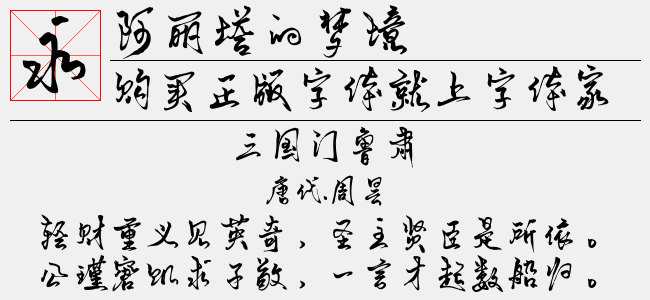 永
阿丽塔的梦境
购买正版字体就上字体家
三国门鲁肃
唐代.周昙
轻财重义见英奇，圣主贤臣是所依。
公瑾窘饥求子敬，一言才起数船归。